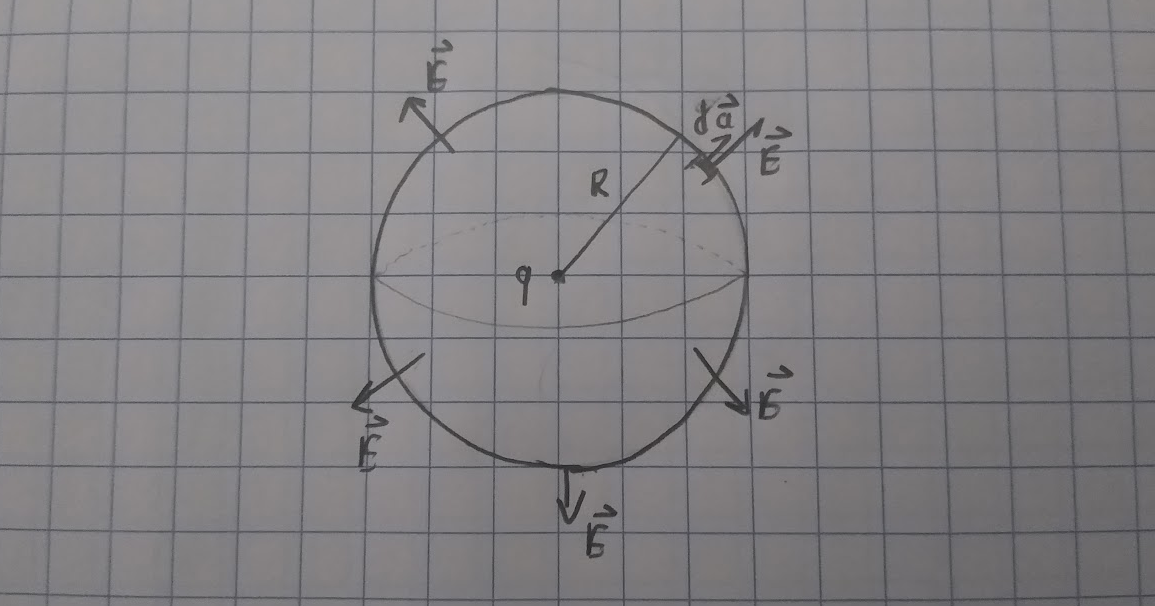 E⃗
da⃗
E⃗
R
q
E⃗
E⃗
E⃗